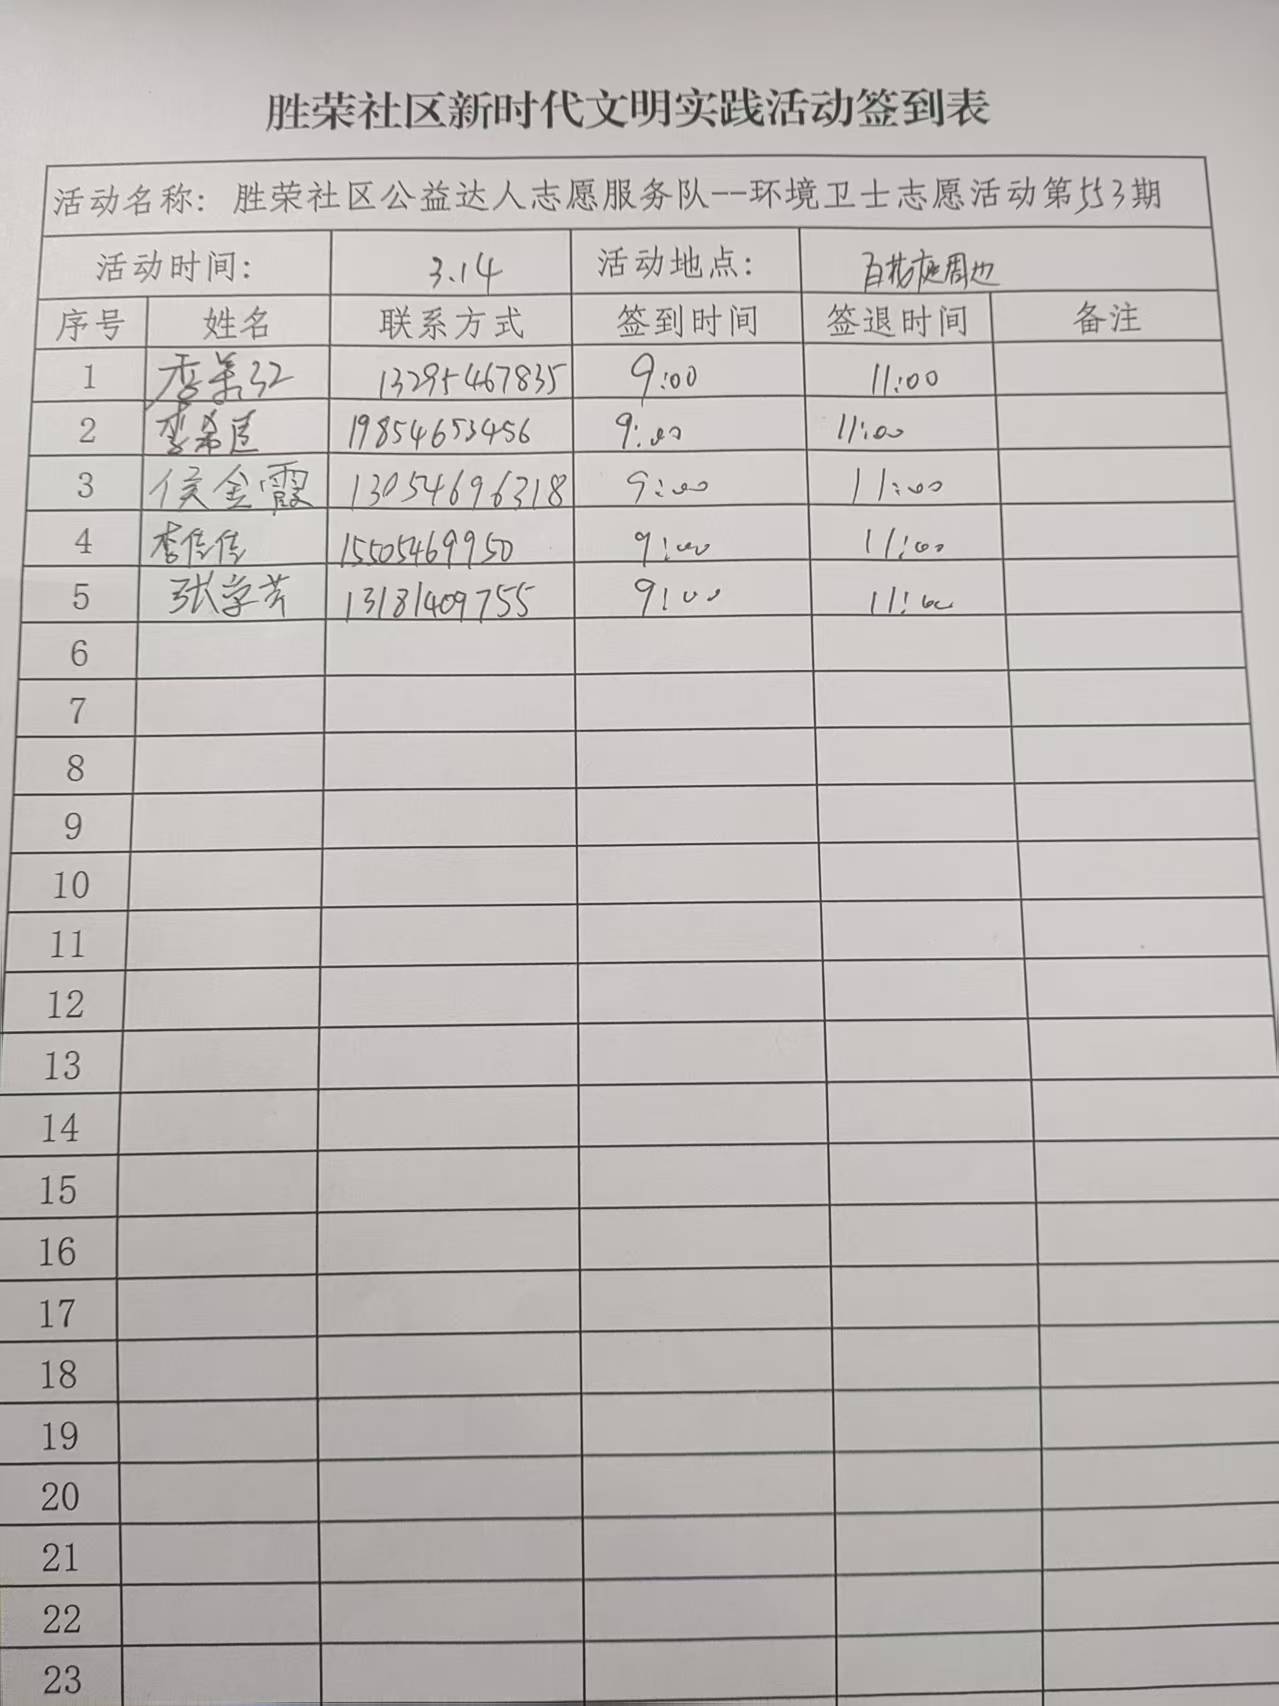 胜荣社区新时代文明实践活动签到表
活动名称：胜荣社区公益达人志愿服务队--环境卫士志愿活动第553期
活动时间： 3.14 活动地点： 百花庭周边
序号 姓名 联系方式 签到时间 签退时间 备注
1 李 13295467835 9:00 11:00
2 李希 19854653456 9:00 11:00
3 侯金霞 13054696318 9:00 11:00
4 李佳佳 15505469950 9:00 11:00
5 张学芹 13181409755 9:00 11:00
6
7
8
9
10
11
12
13
14
15
16
17
18
19
20
21
22
23